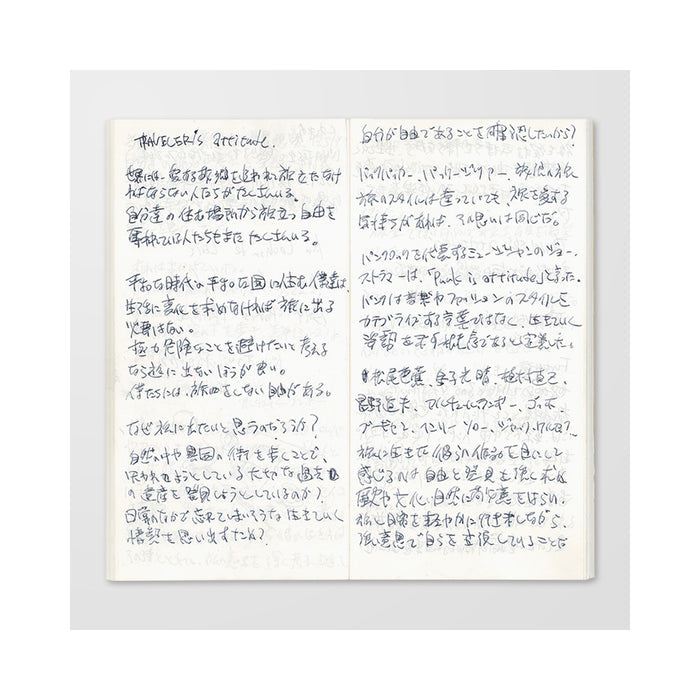 TRAVELER'S attitude.
世界には、愛する故郷を追われ旅立たなけ
ればならない人たちがたくさんいる。
自分達の住む場所から旅立つ自由を
奪われている人たちもまたたくさんいる。
平和な時代の平和な国に住む僕達は
生活に変化を求めなければ旅に出る
必要はない。
極力危険なことを避けたいと考える
なら旅に出ないほうが良い。
僕たちには、旅をしない自由がある。
なぜ旅に出たいと思うのだろうか?
自然の中や異国の街を歩くことで、
失われようとしている大切な過去
の遺産を発見しようとしているのか?
日常のなかで忘れてしまいそうな生きていく
情熱を思い出すため?
自分が自由であることを確認したいから?
バックパッカー、パッケージツアー、放浪の旅
旅のスタイルは違っていても、旅を愛する
気持ちがあれば、その思いは同じだ。
パンクロックを代表するミュージシャンのジョー・
ストラマーは、「Punk is attitude」と言った。
パンクは音楽やファッションのスタイルを
カテゴライズする言葉ではなく、生きていく
姿勢を示す概念であると定義した。
松尾芭蕉、金子光晴、植村直己、
星野道夫、マルチェロ・、ゴッホ、
ゴーギャン、ヘンリー・ソロー、ジャック・ケルアック…
旅に生きた彼らの作品を目にして
感じるのは自由と発見を強く求め
歴史や文化、自然に敬意をはらい、
旅と日常を軽やかに行き来しながら、
強い意思で自らを表現していることだ